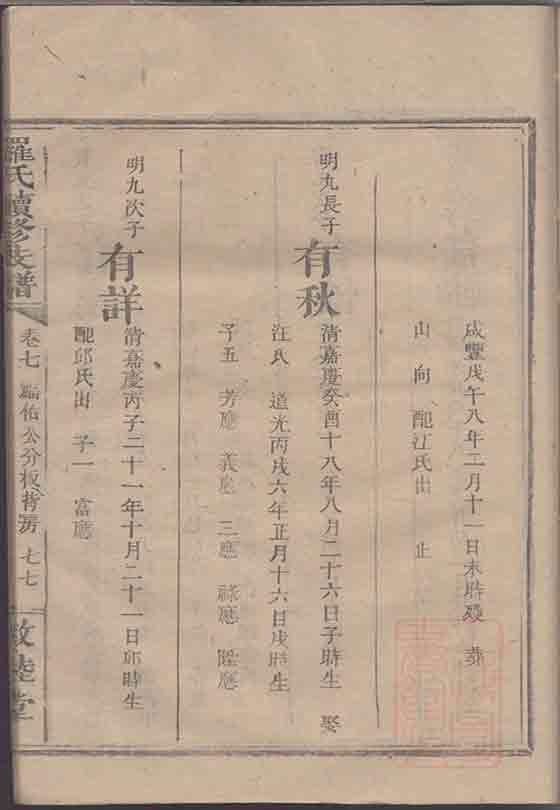 咸豐戊午八年二月十一日未時殁 葬
山 向 配江氏出 止
明九長子
有秋
清嘉慶癸酉十八年八月二十六日子時生 娶
汪氏 道光丙戌六年正月十六日戌時生
子五 芳應 義應 三應 祿應 陞應
明九次子
有詳
清嘉慶丙子二十一年十月二十一日卯時生
配邱氏出 子一 富應
羅氏續修支譜
卷七 公分板背房 七七
敦睦堂